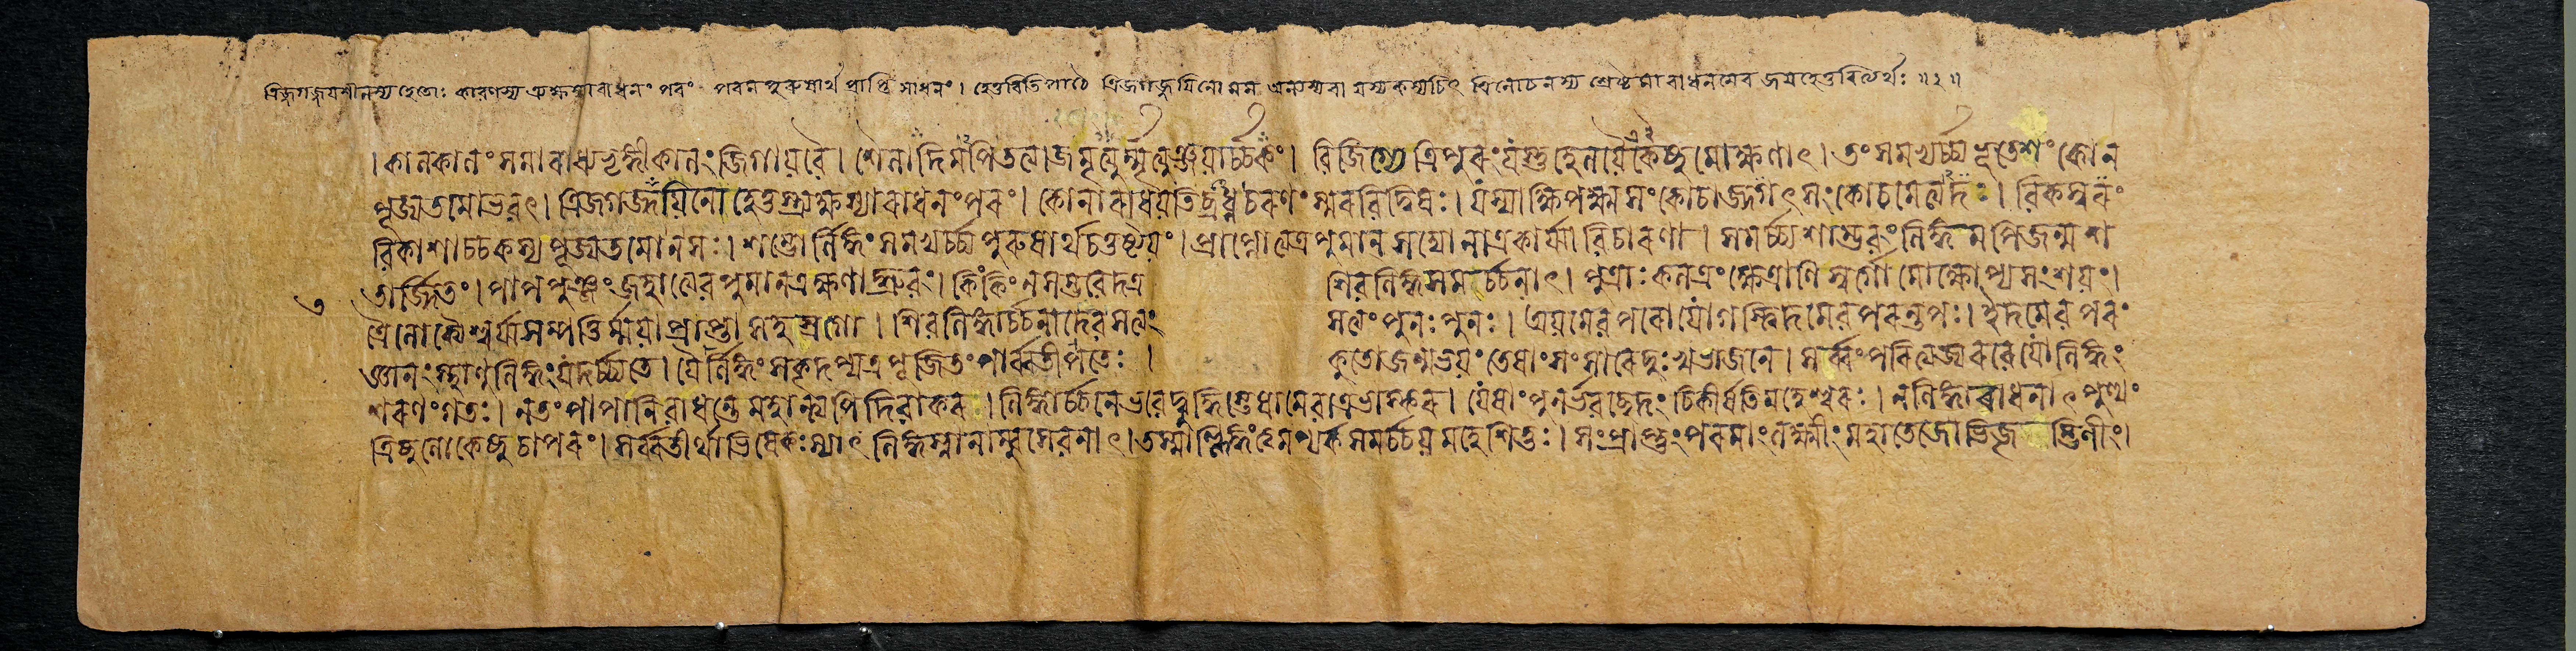 ত্রিজগজ্জয়শীলস্য হেতোঃ কারণস্য ত্র্যক্ষস্যারাধনং পরং পরমপুরুষার্থ প্রাপ্তি সাধনং। হেতুরিতি পাঠে ত্রিজগজ্জয়িনো মম অন্যস্য বা যস্য কস্যচিৎ ত্রিলোচনস্য শ্রেষ্ঠমারাধনমেব জয়হেতুরিত্যর্থঃ ॥২॥
।কালকালং সমারাধ্য ভৃঙ্গী কালং জিগায় বৈ। শৈলাদিমপি তত্যাজ মৃত্যুর্মৃত্যুঞ্জয়ার্চ্চকং। বিজিগ্যে ত্রিপুরং যস্তু হেলয়ৈকেষুমোক্ষণাৎ। তং সমভ্যর্চ্চ্য ভূতেশং কো ন
পূজ্যতমো ভবেৎ। ত্রিজগজ্জয়িনো হেতুস্ত্র্যক্ষস্যারাধনং পরং। কো নারাধয়তি ব্রধ্নচরণং স্মরবিদ্বিষঃ। যস্যাক্ষিপক্ষ্মসংকোচাজ্জগৎসংকোচমেত্যদঃ। বিকস্বরং
বিকাশাচ্চ কস্য পূজ্যতমো ন সঃ। শম্ভোর্লিঙ্গং সমভ্যর্চ্চ্য পুরুষার্থচতুষ্টয়ং। প্রাপ্নোত্যত্র পুমান্ সদ্যো নাত্র কার্য্যা বিচারণা। সমর্চ্চ্য শাম্ভবং লিঙ্গমপি জন্মশ
তার্জ্জিতং। পাপপুঞ্জং জহাত্যেব পুমানত্র ক্ষণাদ্ধ্রুবং। কিং কিং ন সম্ভবেদত্র শিবলিঙ্গসমর্চ্চনাৎ। পুত্রাঃ কলত্রং ক্ষেত্রাণি স্বর্গো মোক্ষোপ্যসংশয়ং।
ত্রৈলোক্যৈশ্বর্য্যসম্পত্তির্ম্ময়া প্রাপ্তা সহস্রশো। শিবলিঙ্গার্চ্চনাদেব সত্যং সত্যং পুনঃ পুনঃ। অয়মেব পরো যোগস্ত্বিদমেব পরন্তপঃ। ইদমেব পরং
জ্ঞানং স্থাণুলিঙ্গং যদর্চ্চ্যতে। যৈর্লিঙ্গং সকৃদপ্যত্র পূজিতং পার্ব্বতীপতেঃ। কুতো জন্মভয়ং তেষাং সংসারে দুঃখভাজনে। সর্ব্বং পরিত্যজ্য রবে যো লিঙ্গং
শরণং গতঃ। ন তং পাপানি বাধন্তে মহান্ত্যপি দিবাকর। লিঙ্গার্চ্চনে ভবেদ্বুদ্ধিস্তেষামেবাত্র ভাস্কর। যেষাং পুনর্ভবচ্ছেদং চিকীর্ষতি মহেশ্বরঃ। ন লিঙ্গারাধনাৎ পুণ্যং
ত্রিষু লোকেষু চাপরং। সর্ব্বতীর্থাভিষেকঃ স্যাৎ লিঙ্গস্নানাম্বুসেবনাৎ। তস্মাল্লিঙ্গং ত্বমপ্যর্ক সমর্চ্চয় মহেশিতুঃ। সংপ্রাপ্তুং পরমাং লক্ষ্মীং মহাতেজোভিজৃম্ভিণীং।